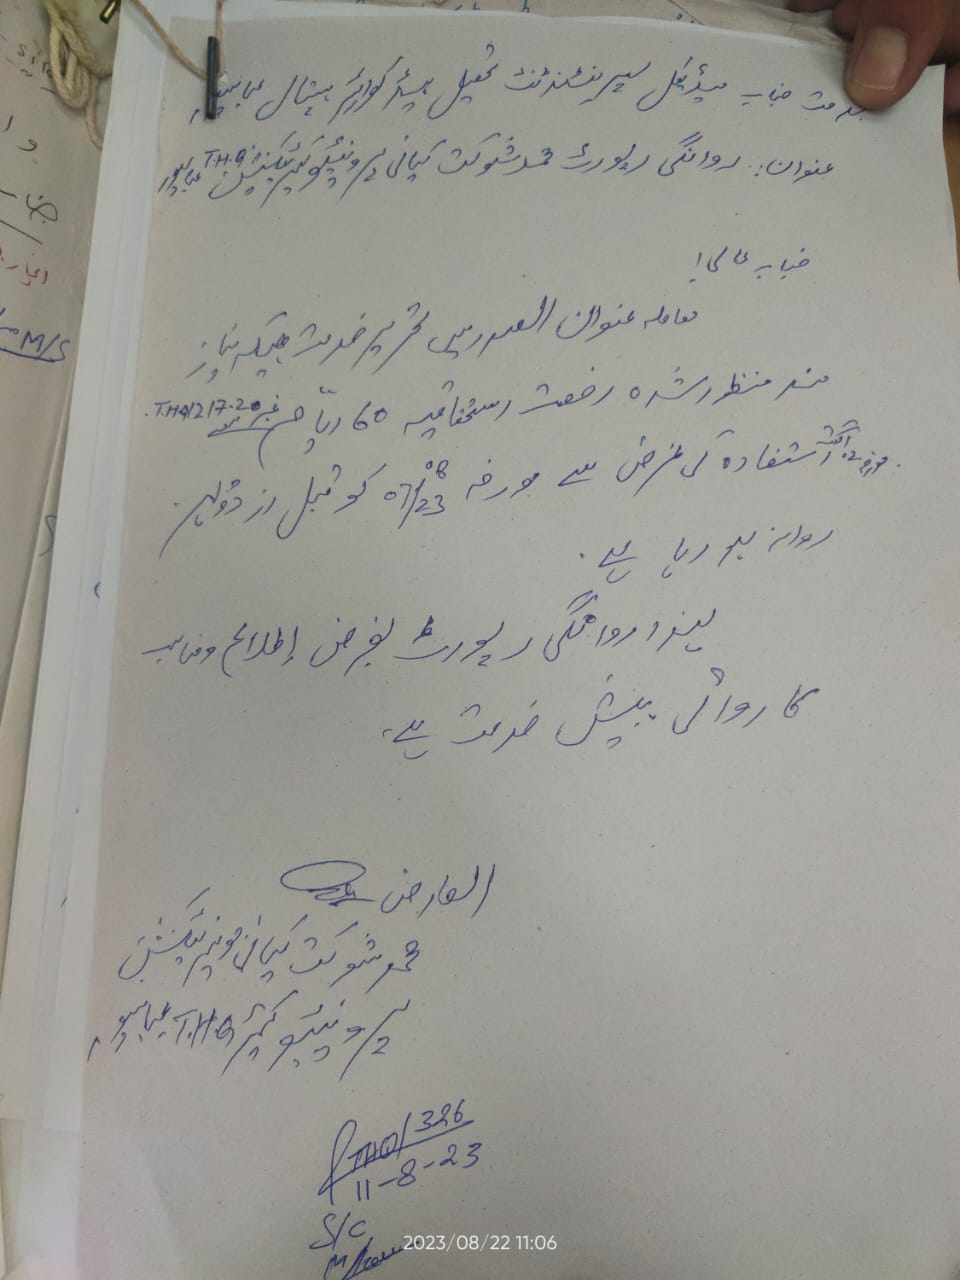 بخدمت جناب میڈیکل سپرنٹنڈنٹ تحصیل ہیڈ کوارٹر ہسپتال عباسپور
عنوان:۔ روانگی رپورٹ محمد شوکت کیانی پریونٹیو ٹیکنیشن T.H.Q عباسپور
جناب عالی!
معاملہ عنوان الصدر میں تحریر خدمت ہیکہ نیاز
مند منظور شدہ رخصت استحقاقیہ 60 ایام نمبر T.HQ/217-20
استفادہ کی غرض سے مورخہ 07/08/23 کو قبل از دوپہر
روانہ ہو رہا ہے۔
لہذا روانگی رپورٹ بغرض اطلاع و مناسب
کاروائی پیش خدمت ہے۔
العارض
محمد شوکت کیانی ٹیکنیشن
پریونٹیو T.H.Q عباسپور
THQ/326
11-8-23
S/C
2023/08/22 11:06
M/S